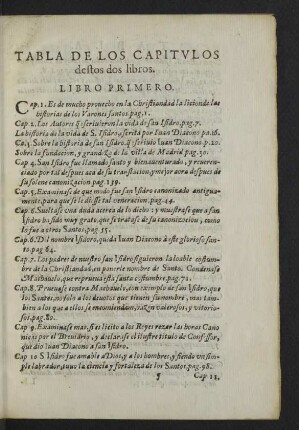 TABLA DE LOS CAPITVLOS
destos dos libros.
LIBRO PRIMERO.
Cap. 1. Es de mucho prouecho en la Christiandad la licion de las
historias de los Varones santos. pag. 1.
Cap 2. Los Autores q̃ escriuieron la vida de san Isidro, pag. 7.
La historia de la vida de S. Isidro, escrita por Iuan Diacono pa. 16.
Ca. 3. Sobre la historia de san Isidro, q̃ escriuio Iuan Diacono. p. 20.
Sobre la fundacion, y grandeza de la villa de Madrid pag. 30.
Cap 4. San Isidro fue llamado santo y bienauenturado, y reueren-
ciado por tal despues aca de su translacion, y mejor aca despues de
su solene canonizacion pag. 139.
Cap. 5. Examinase de que modo fue san Isidro canonizado antigua-
mente, para que se le diesse tal veneracion. pag. 44.
Cap. 6. Sueltase vna duda acerca de lo dicho: y muestrase que a san
Isidro ha sido muy grato, que se tratase de su canonizacion, como
lo fue a otros Santos. pag 55.
Cap. 6. Del nombre Isidoro, que da Iuan Diacono a este glorioso san-
to pag 64.
Cap. 7. Los padres de nuestro san Isidro siguieron la loable costum-
bre de la Christiandad, en ponerle nombre de Santo. Condenase
a Machiauelo, que reprueua esta santa costumbre. pag. 71.
Cap. 8. Prueuase contra Machauelo, con exemplo de san Isidro, que
los Santos, no solo a los deuotos que tienen su nombre, mas tam-
bien a los que a ellos se encomiendan, hazen valerosos, y vitorio-
sos. pag. 80.
Cap. 9. Examinase mas, si es licito a los Reyes rezar las horas Cano
nicas por el Breuiario, y declarase el ilustre titulo de Confessor,
que dio Iuan Diacono a san Isidro.
Cap 10 S. Isidro fue amable a Dios, y a los hombres, y siendo vn sim-
ple labrador, tuuo la ciencia y fortaleza de los Santos. pag. 98.
Cap 11.